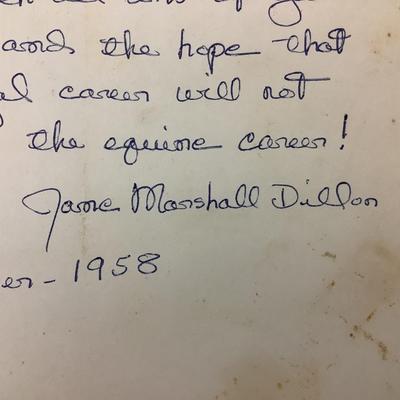 and the hope that
career will not
the equine career!
Jane Marshall Dillon
er - 1958